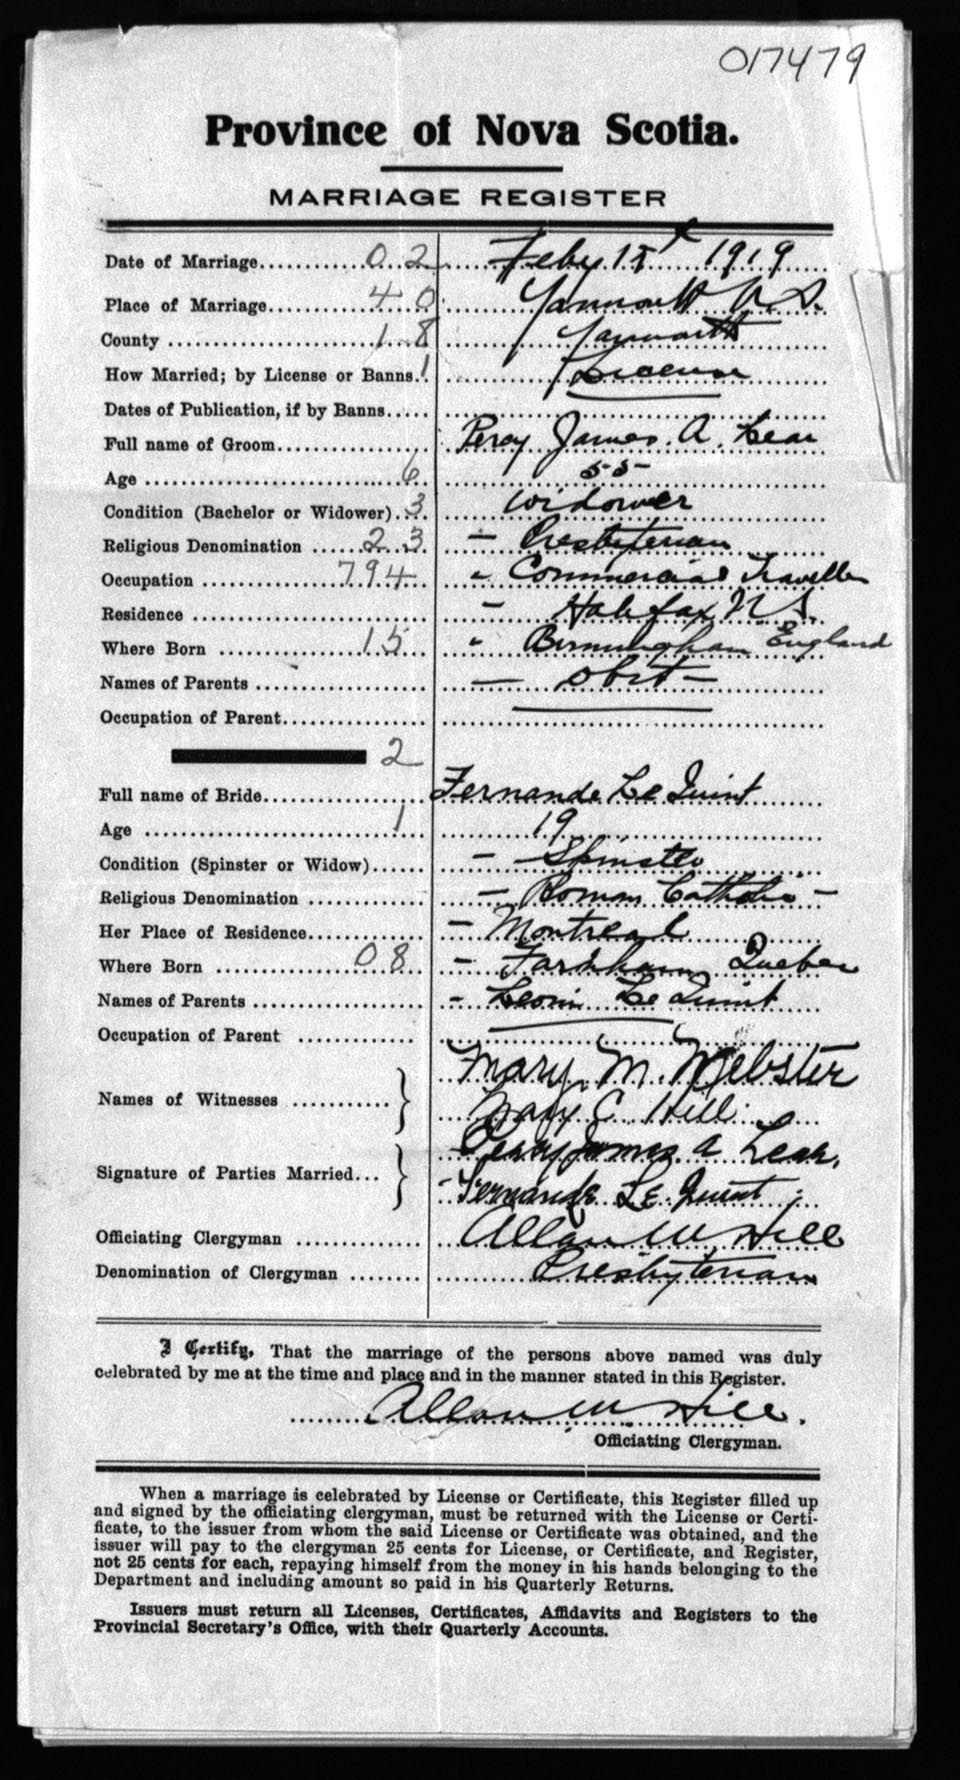 017479
Province of Nova Scotia.
MARRIAGE REGISTER
Date of Marriage 02 Feby 1919
Place of Marriage 40 Yarmouth N.S.
County 18 Yarmouth
How Married; by License or Banns. 1 License
Dates of Publication, if by Banns
Full name of Groom Percy James A. Lear
Age 6 55
Condition (Bachelor or Widower) 3 Widower
Religious Denomination 23 – Presbyterian
Occupation 794 - Commercial Traveller
Residence – Halifax N.S.
Where Born 15 - Birmingham England
Names of Parents — obit —
Occupation of Parent
2
Full name of Bride Fernande Le Quint
Age 1 19
Condition (Spinster or Widow) – Spinster
Religious Denomination – Roman Catholic –
Her Place of Residence – Montreal
Where Born 08 – Farnham Quebec
Names of Parents - Le Quint
Occupation of Parent
Names of Witnesses Mary M. Webster
Mary C Hill
Signature of Parties Married Percy James A Lear.
Fernande Le Quint
Officiating Clergyman Allan W Hill
Denomination of Clergyman Presbyterian
I Certify, That the marriage of the persons above named was duly
celebrated by me at the time and place and in the manner stated in this Register.
Allan W. Hill.
Officiating Clergyman.
When a marriage is celebrated by License or Certificate, this Register filled up
and signed by the officiating clergyman, must be returned with the License or Certi-
ficate, to the issuer from whom the said License or Certificate was obtained, and the
issuer will pay to the clergyman 25 cents for License, or Certificate, and Register,
not 25 cents for each, repaying himself from the money in his hands belonging to the
Department and including amount so paid in his Quarterly Returns.
Issuers must return all Licenses, Certificates, Affidavits and Registers to the
Provincial Secretary's Office, with their Quarterly Accounts.